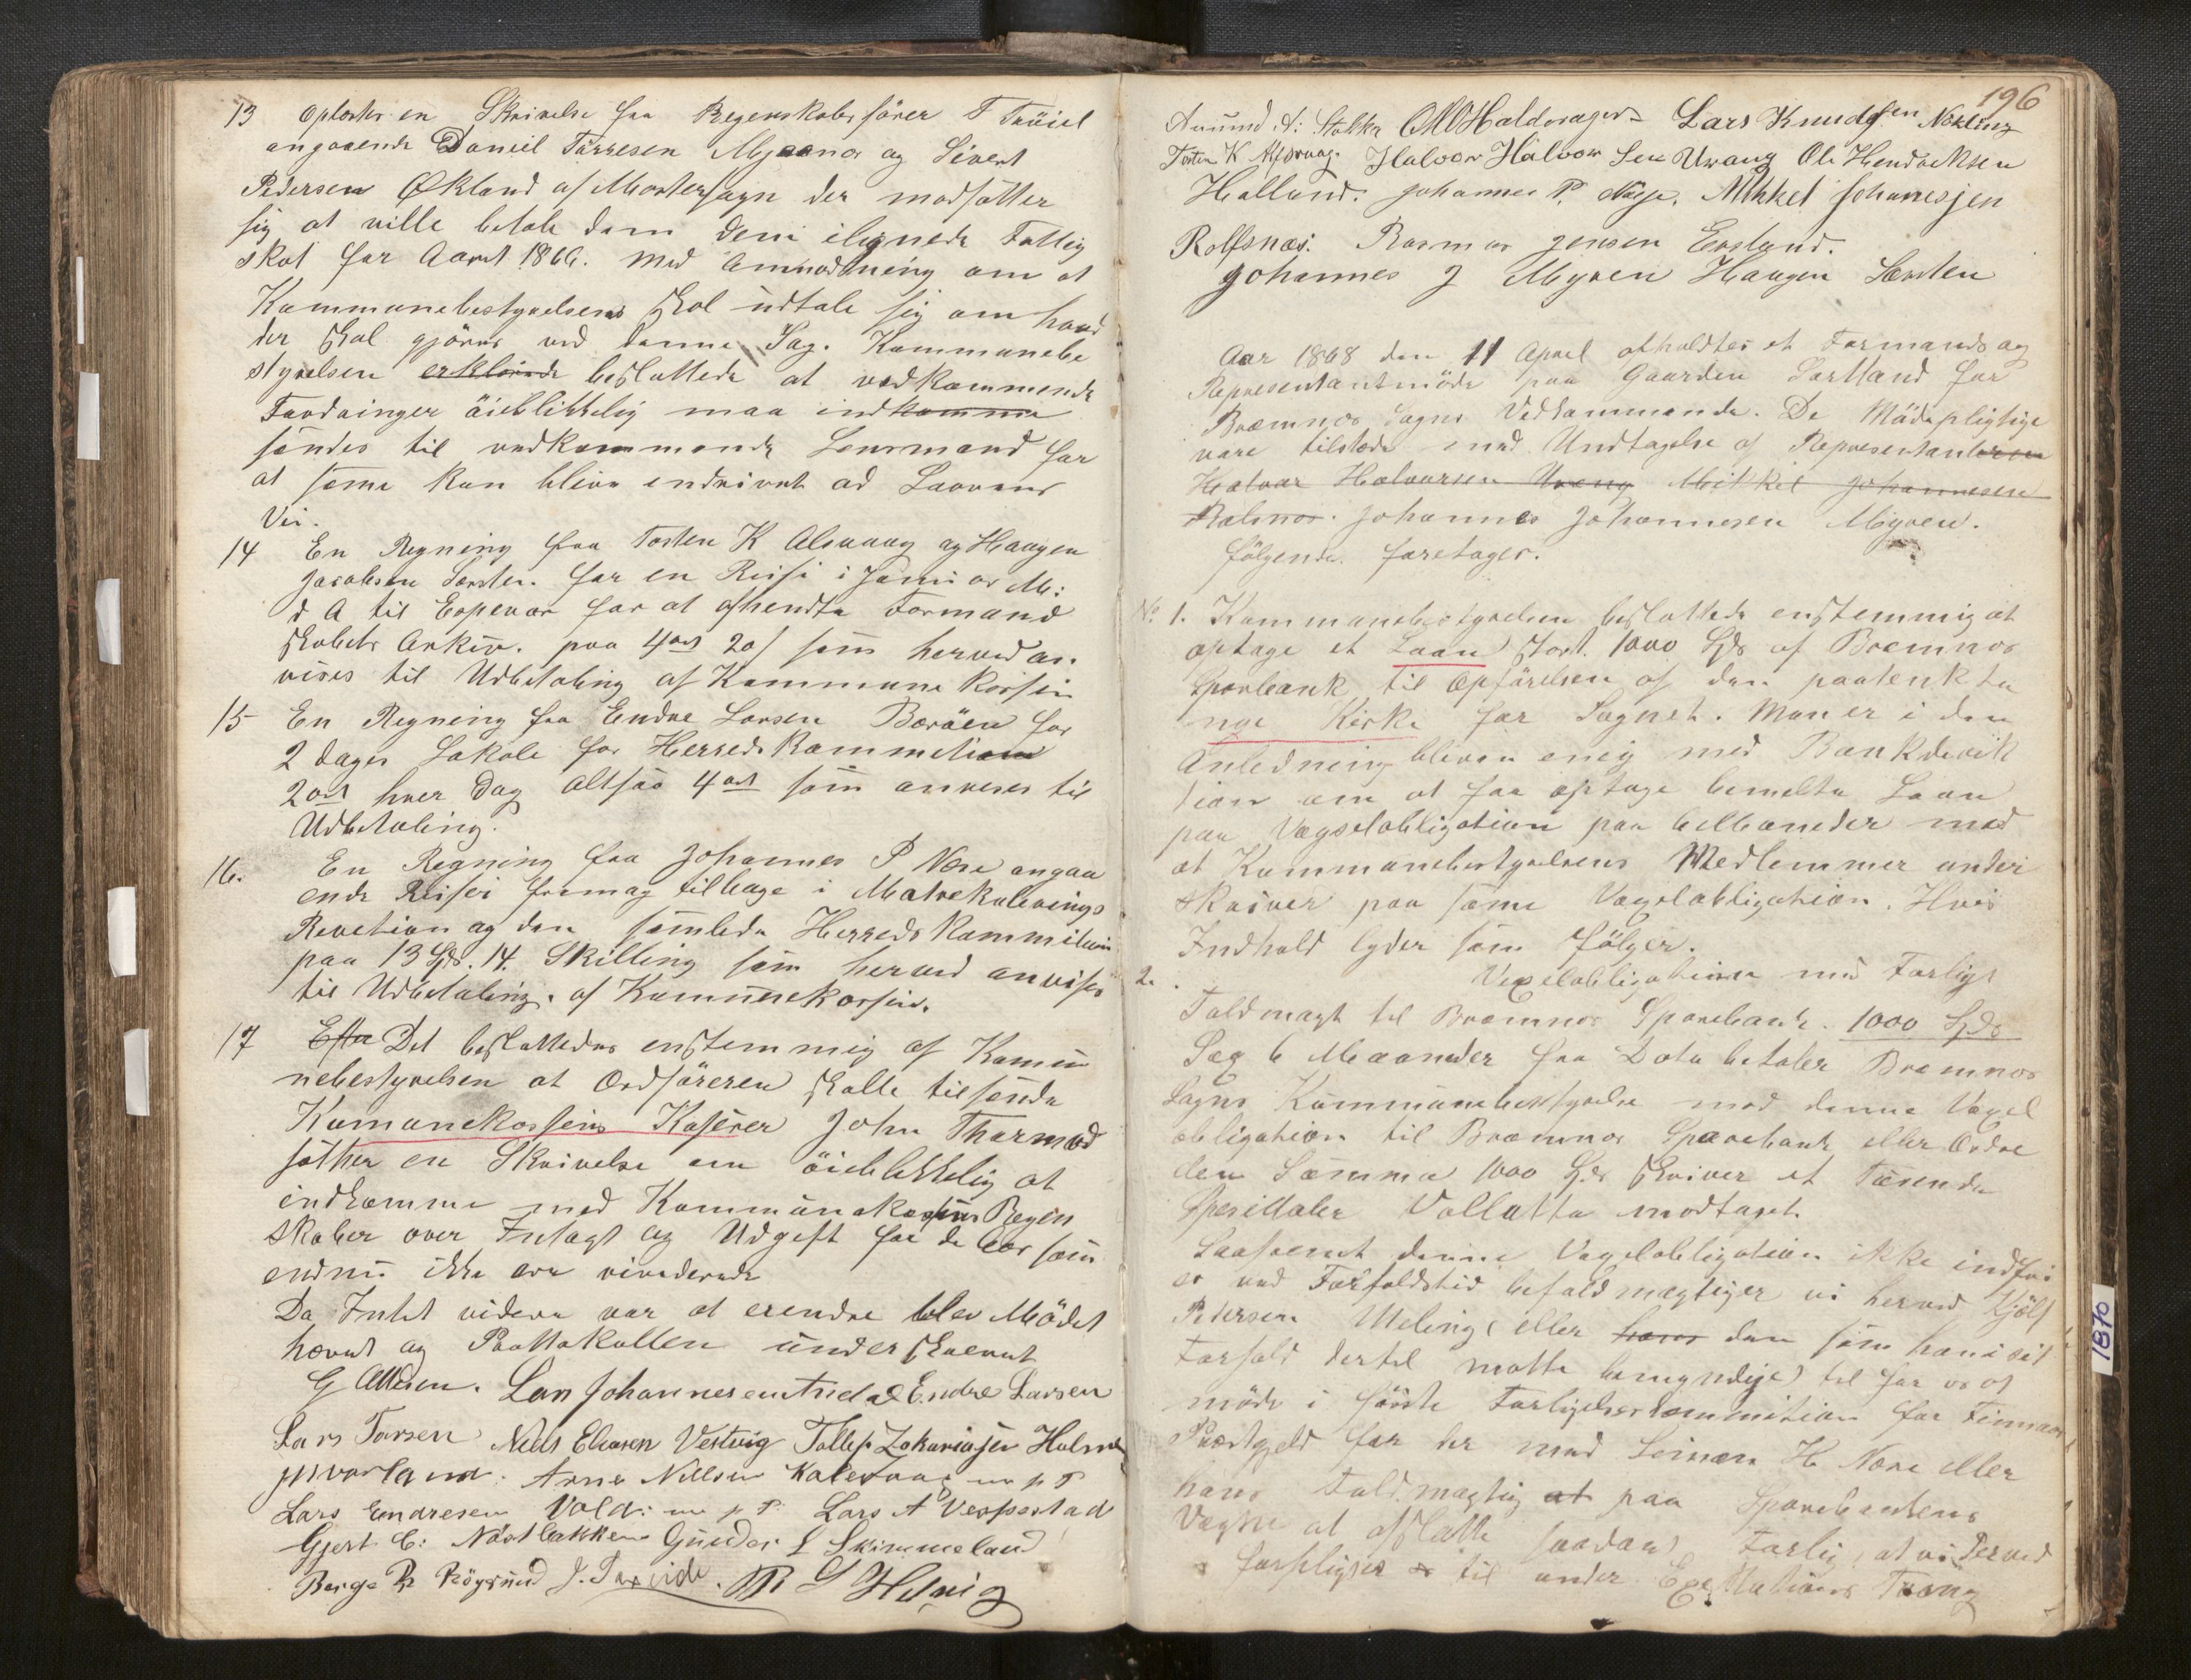 13 Oplæstes en Skrivelse fra Regenskabsförer T Tröiel
angaaende Daniel Törresen Mjaanos og Sivert
Pedersen Økland af Mostersogn der modsætter
sig at ville betale dem dem ilignede Fattig
skat for Aaret 1866. med Anmodning om at
Kommunebestyrelsens skal udtale sig om hvad
der skal gjöres ved denne Sag. Kommunebe
styrelsen erklærede besluttede at vedkommende
Fordringer öieblikkelig maa indkomme
sendes til vedkommende Lensmand for
at same kan blive inddrivet ad Lovens
Vei.
14 En Regning fra Torsten K Alsvaag og Haagen
Jacobsen Særsten for en Reise i Januar M:
d A til Espevær for at afhendte Formand
skabets Arkiv. paa 4 ort 20 s som herved an.
vises til Udbetaling af Kommune Kassen
15 En Regning fra Endre Larsen Börøen for
2 dages Lokale for Herredskommetionen
2 ort hver Dag altsaa 4 ort som anvises til
Udbetaling.
16. En Regning fra Johannes P Nese angaa
ende Reiser frem og tilbage i Matrekulerings
Revetion og den samlede Herreds Kommition
paa 13 Spd. 14. Skilling som herved anvises
til Udbetaling. af Kommunekassen.
17 Efter Det besluttedes enstemmig af Komu
nebestyrelsen at Ordföreren skulle tilsende
Komunekassens Kaserer John Thormod
sæther en Skrivelse om öieblikkelig at
indkomme med Kommunekassens Regen
skaber over Intægt og Udgift for de Aar som
endnu ikke ere reviderede
Da Intet videre var at erendre blev Mödet
hævet og Prottokollen underskrevet
G Ollesen. Lars Johannesen Endre Larsen
Lars Larsen Niels Eliasen Vestvig Tollef Zakariasen Holme
Arne Nillsen Kalevaag m p P
Lars Endresen Vold: m p P Lars A Vespestad
Gjert C: Nöstbakken Guder L Skimmeland
Berge P Röyrsund J.
196
Amund A: Stokke O M Haldorager Lars Knudsen Nekling
Torsten K Alsvaag. Halvor Halvorsen Urang Ole Hendriksen
Hallund. Johannes P. Næse. Mikkel Johanesjen
Rolfsnæs. Rasmus Jensen Eidsland.
Johannes J Myren Haagen Særsten
Aar 1868 den 11 April afholdtes et Formands og
Representantmöde paa Gaarden Sortland for
Bremnes Sogns Vedkommende. De Mödepligtige
vare tilstede med Undtagelse af Representanterne
Halvor Halvorsen Urang Mikkel Johannesen
Rolsnes. Johannes Johannesen Myren.
fölgende foretages.
No 1. Kommunebestyrelsen besluttede enstemmig at
optage et Laan stort 1000 Spd af Bremnes
Sparbank til Opförelsen af den paatenkte
nye Kirke for Sognet. Man er i den
Anledning bleven enig med Bankderek
tion om at faa optage bemelte Laan
paa Vexselobligation paa 6 Maaneder med
at Kommunebestyrelsens Medlemmer under
skriver paa same Vexelobligation. Hvis
Indhold lyder som fölger.
2. Vexelobligation med Forligs
Fuldmagt til Bremnes Sparebank. 1000 Spd
Sex 6 Maaneder fra Dato betaler Bremnes
Sogns Kommunebestyrelse mod denne Vexel
obligation til Bremnes Sparebank eller Ordre
den Summa 1000 Spd skriver et Tusende
Spesidaler Vallutta modtaget.
Saafremt denne Vexelobligation ikke indfri
es ved Forfaldstid befuldmægtiger vi herved Kjöll
Pedersen Meling (eller hans den som han i sit
Forfald dertil matte bemyndige) til for os at
möde i förste Forligelseskommition for Finnaas
Prestgjeld for der med Simen H. Nese eller
hans Fuldmægtig at paa Sparebankens
Vegne at afslutte saadant Forlig, at vi derved
forpligtes os til under Exekutions Tvang
1870